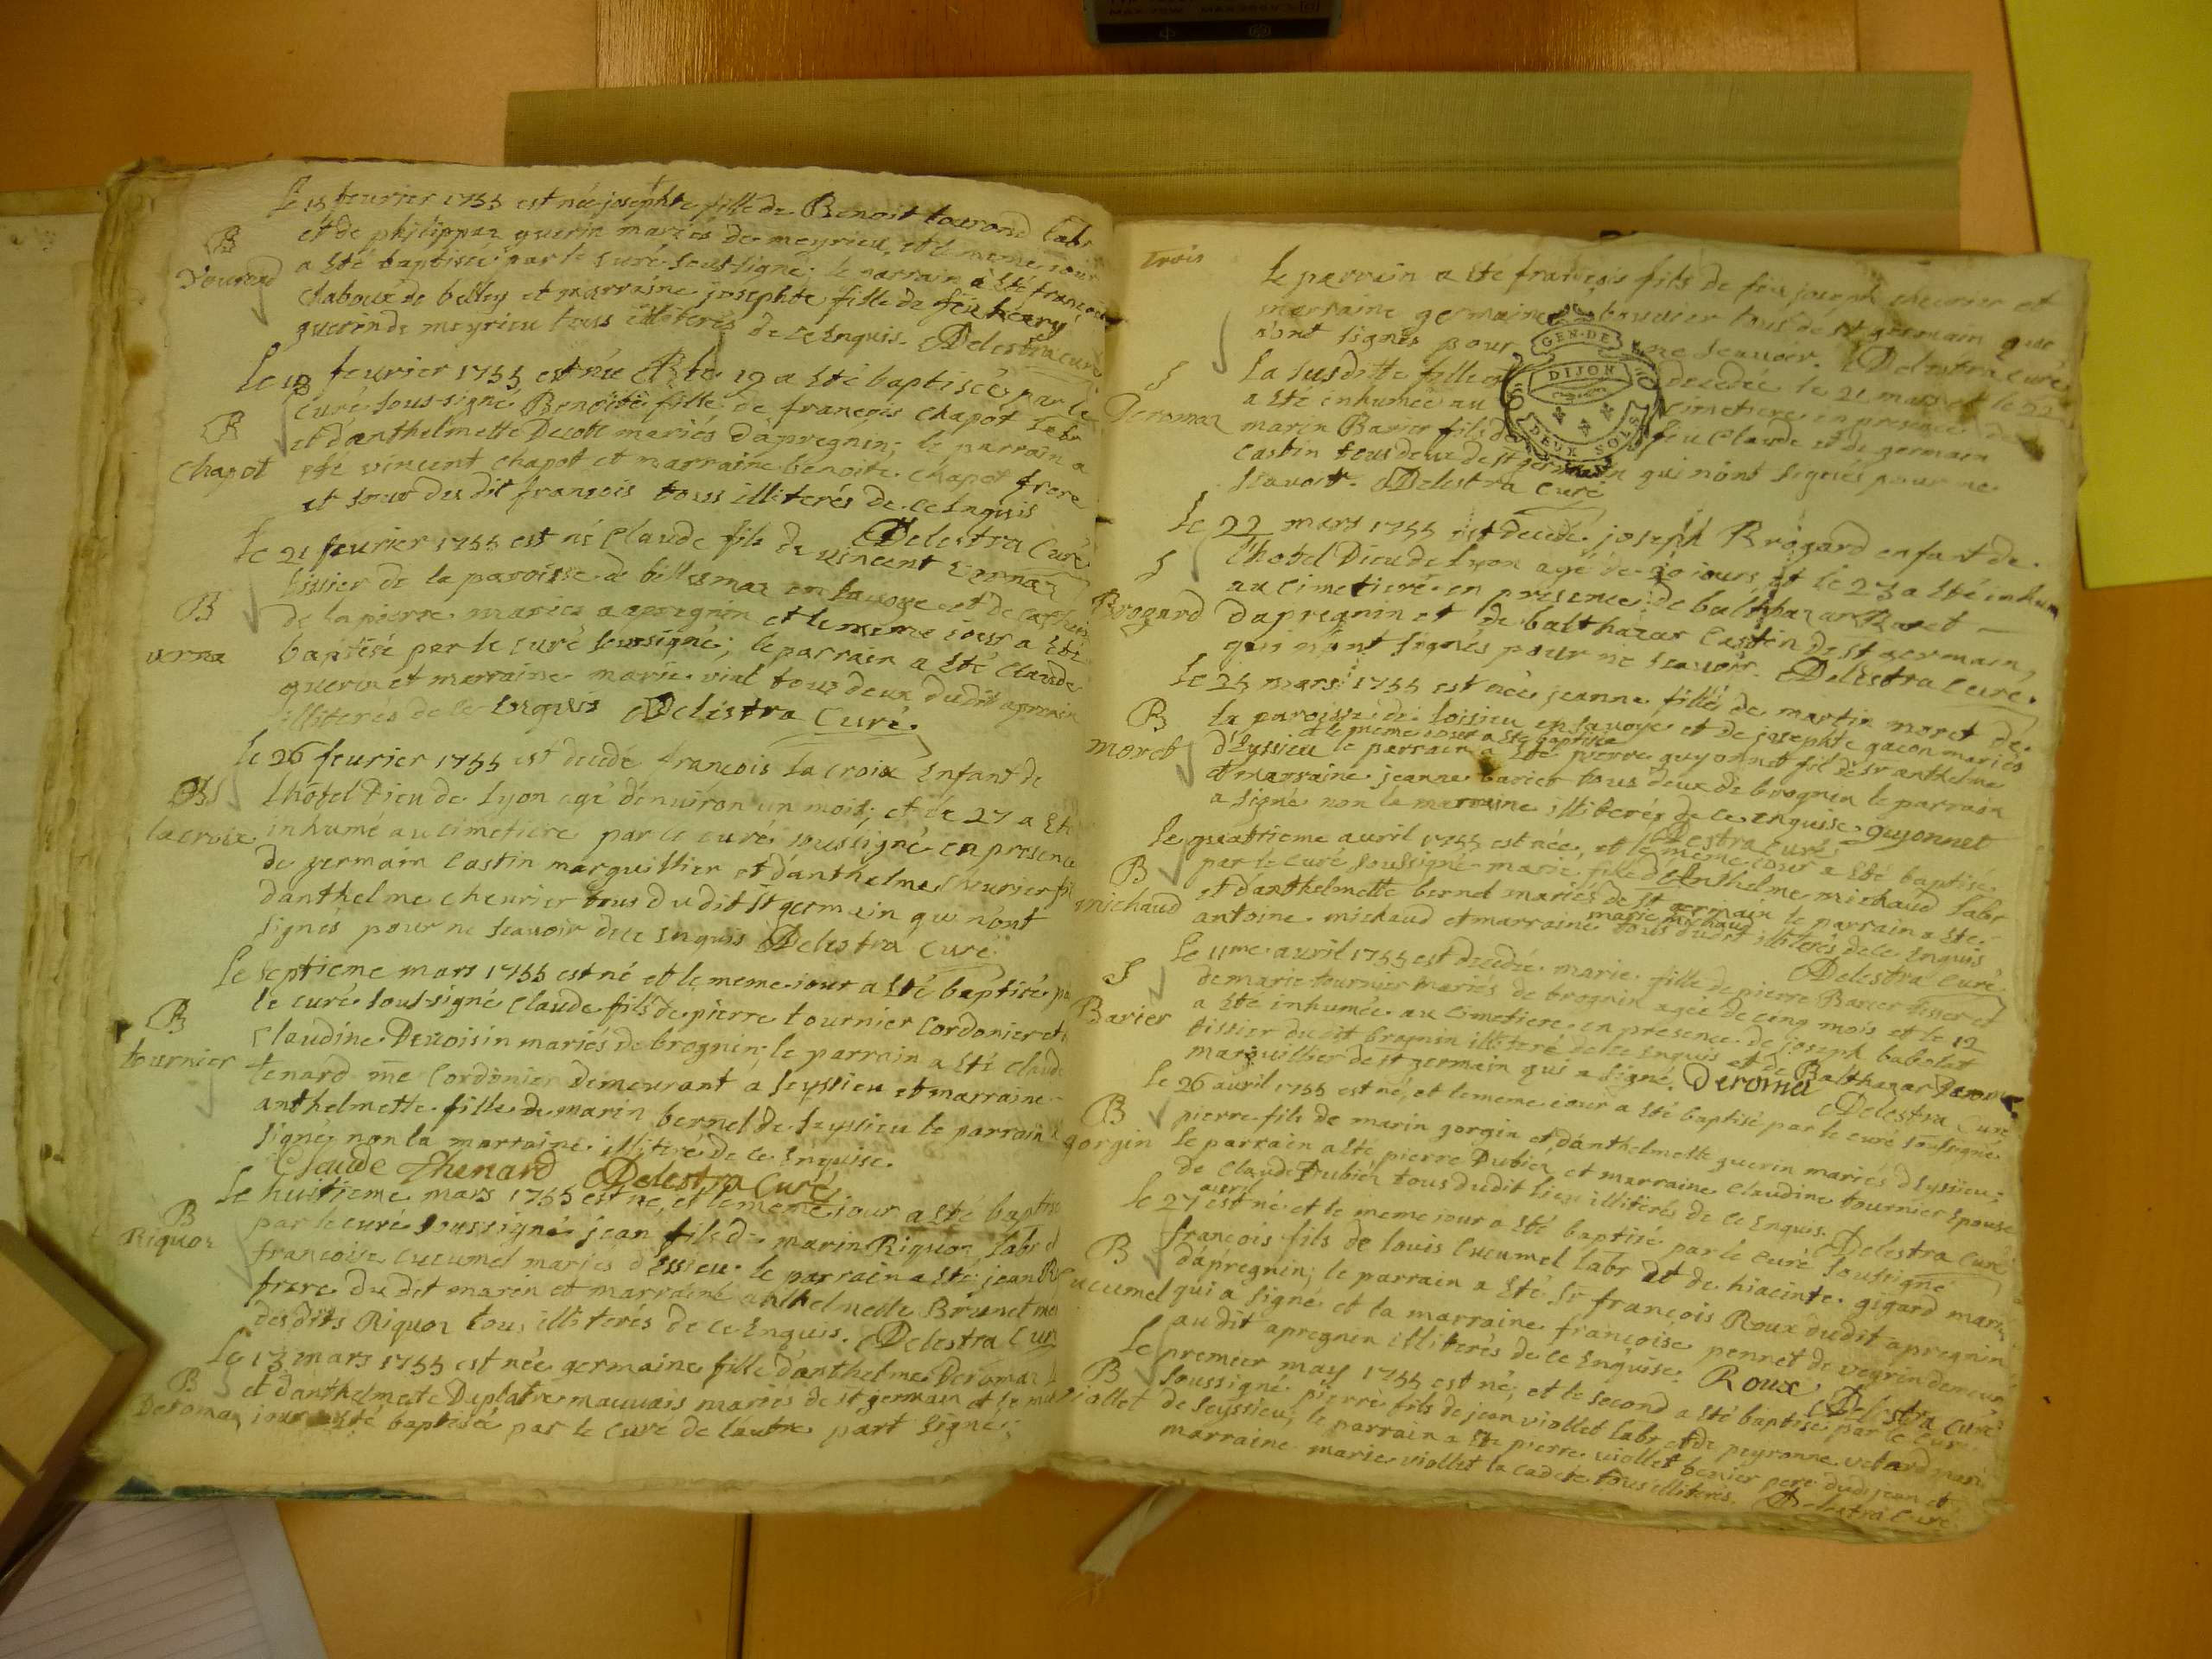 Le 15 feurier 1755 est née josephte fille de Benoit tourond labr
et de philippaz guerin mariés de meyrieu, et le meme jour
a été baptisée par le curé soussigné; le parrain a été françois
Claboux de belley et marraine josephte fille de feu henry
guerin de meyrieu tous illiterés de ce Enquis. Delestra curé
B
Tourond
Le 18 feurier 1755 est née et le 19 a été baptisée par le
curé sous-signé Benoite fille de françois Chapot labr
et d'anthelmette Decott mariés d'apregnin; le parrain a
été vincent chapot et marraine benoite chapot frere
et soeur du dit françois tous illiterés de ce Enquis
Delestra Curé
B
Chapot
Le 21 feurier 1755 est né Claude fils de vincent
de la paroisse de en savoye et de
de la pierre mariez a apregnin et le meme jour a été
baptisé par le curé soussigné; le parrain a été Claude
guerin et marraine marie vial tous deux dudit apregnin
illiterés de ce Enquis Delestra Curé.
B
urna
Le 26 feurier 1755 est decedé françois la croix Enfant de
lhotel Dieu de Lyon agé denuiron un mois; et le 27 a été
inhumé au cimetiere par le curé soussigné en presence
de germain Castin marguillier et d'anthelme Cheurier fils
danthelme cheurier tous dudit St germain qui n'ont
signés pour ne scauoir de ce Enquis Delestra Curé
S
lacroix
Le septieme mars 1755 est né et le meme jour a été baptisé par
le curé sous-signé Claude fils de pierre tournier Cordonier et de
Claudine Deuoisin mariés de brognin; le parrain a été claude
tenard me Cordonier demeurant a seyssieu et marraine
anthelmette fille de marin bernel de seyssieu le parrain a
signé non la marraine illiteré de ce Enquise.
Claude Thenard Delestra Curé
B
tournier
Le huitieme mars 1755 est né, et le meme jour a été baptisé
par le curé soussigné jean fils de marin Riquoz labr et
françoise Cucumel mariés d'Essieu. le parrain a été jean
frere du dit marin et marraine anthelmette Brunet
des dits Riquoz tous illiterés de ce Enquis. Delestra Curé
B
Riquoz
Le 13 mars 1755 est née germaine fille d'anthelme Deromaz
et d'anthelmete Duplatre mauuais mariés de St germain et le meme
jour a été baptisée par le curé de l'autre part signé;
B
Deromaz
trois
Le parrain a été françois fils de feu joseph cheurier et
marraine germaine bouuier tous de St germain qui
n'ont signés pour ne scauoir. Delestra Curé
La susditte fille decedée le 21 mars et le 22
a été inhumée au cimetiere en presence de
marin Barier fils de feu Claude et de germain
Castin tous deux de St germain qui n'ont signés pour ne
scauoir. Delestra Curé
S
Deromaz
GEN. DE
DIJON
DEUX SOLS
Le 22 mars 1755 est decedé joseph Brogard enfant de
l'hotel Dieu de Lyon agé de 20 jours et le 23 a été inhumé
au cimetiere en presence de balthazar
Dapregnin et de balthazar Castin de St germain,
qui n'ont signés pour ne scauoir. Delestra Curé.
S
Brogard
Le 25 mars 1755 est née jeanne fille de martin moret de
la paroisse de loisieu en savoye et de josephte gacon mariés
et le meme jour a été baptisée
d'Eyssieu le parrain a été pierre guyonnet fil de Sr anthelme
et marraine jeanne barier tous deux de brognin le parrain
a signé non la marraine illiterés de ce enquise. guyonnet
Delestra Curé
B
moret
Le quatrieme auril 1755 est née, et le meme jour a été baptisé
par le curé soussigné marie fille d'Anthelme michaud labr
et d'anthelmette bernel mariés de St germain le parrain a été
antoine michaud et marraine marie michaud tous dudit illiterés de ce Enquis
Delestra Curé
B
michaud
Le 11me auril 1755 est decedée marie fille de pierre Barier tissier et
de marie tournier mariés de brognin agée de cinq mois et le 12
a été inhumée au cimetiere en presence de joseph babolat
tissier du dit brognin illiteré de ce Enquis et de Balthazar Deromaz
marguillier de St germain qui a signé. Deromaz Delestra Curé
S
Barier
Le 26 auril 1755 est né, et le meme jour a été baptisé par le curé soussigné
pierre fils de marin gorgin et d'anthelmette guerin mariés d'Eyssieu;
Le parrain a été pierre Dubiez et marraine Claudine tournier Epouse
de Claude Dubiez tous dudit lieu illiterés de ce Enquis. Delestra Curé
B
gorgin
Le 27 auril est né et le meme jour a été baptisé par le curé soussigné
françois fils de louis Cucumel labr et de hiacinte gigard mariés
d'apregnin; le parrain a été Sr françois Roux dudit apregnin
qui a signé et la marraine françoise pennet de demeurant
au dit apregnin illiterés de ce Enquise. Roux Delestra Curé
B
Cucumel
Le premier may 1755 est né, et le second a été baptisé par le curé
soussigné pierre fils de jean viollet labr et de peyronne mariés
de seyssieu, le parrain a été pierre viollet pere dudit jean et
marraine marie viollet la cadete tous illiterés. Delestra Curé
B
viollet